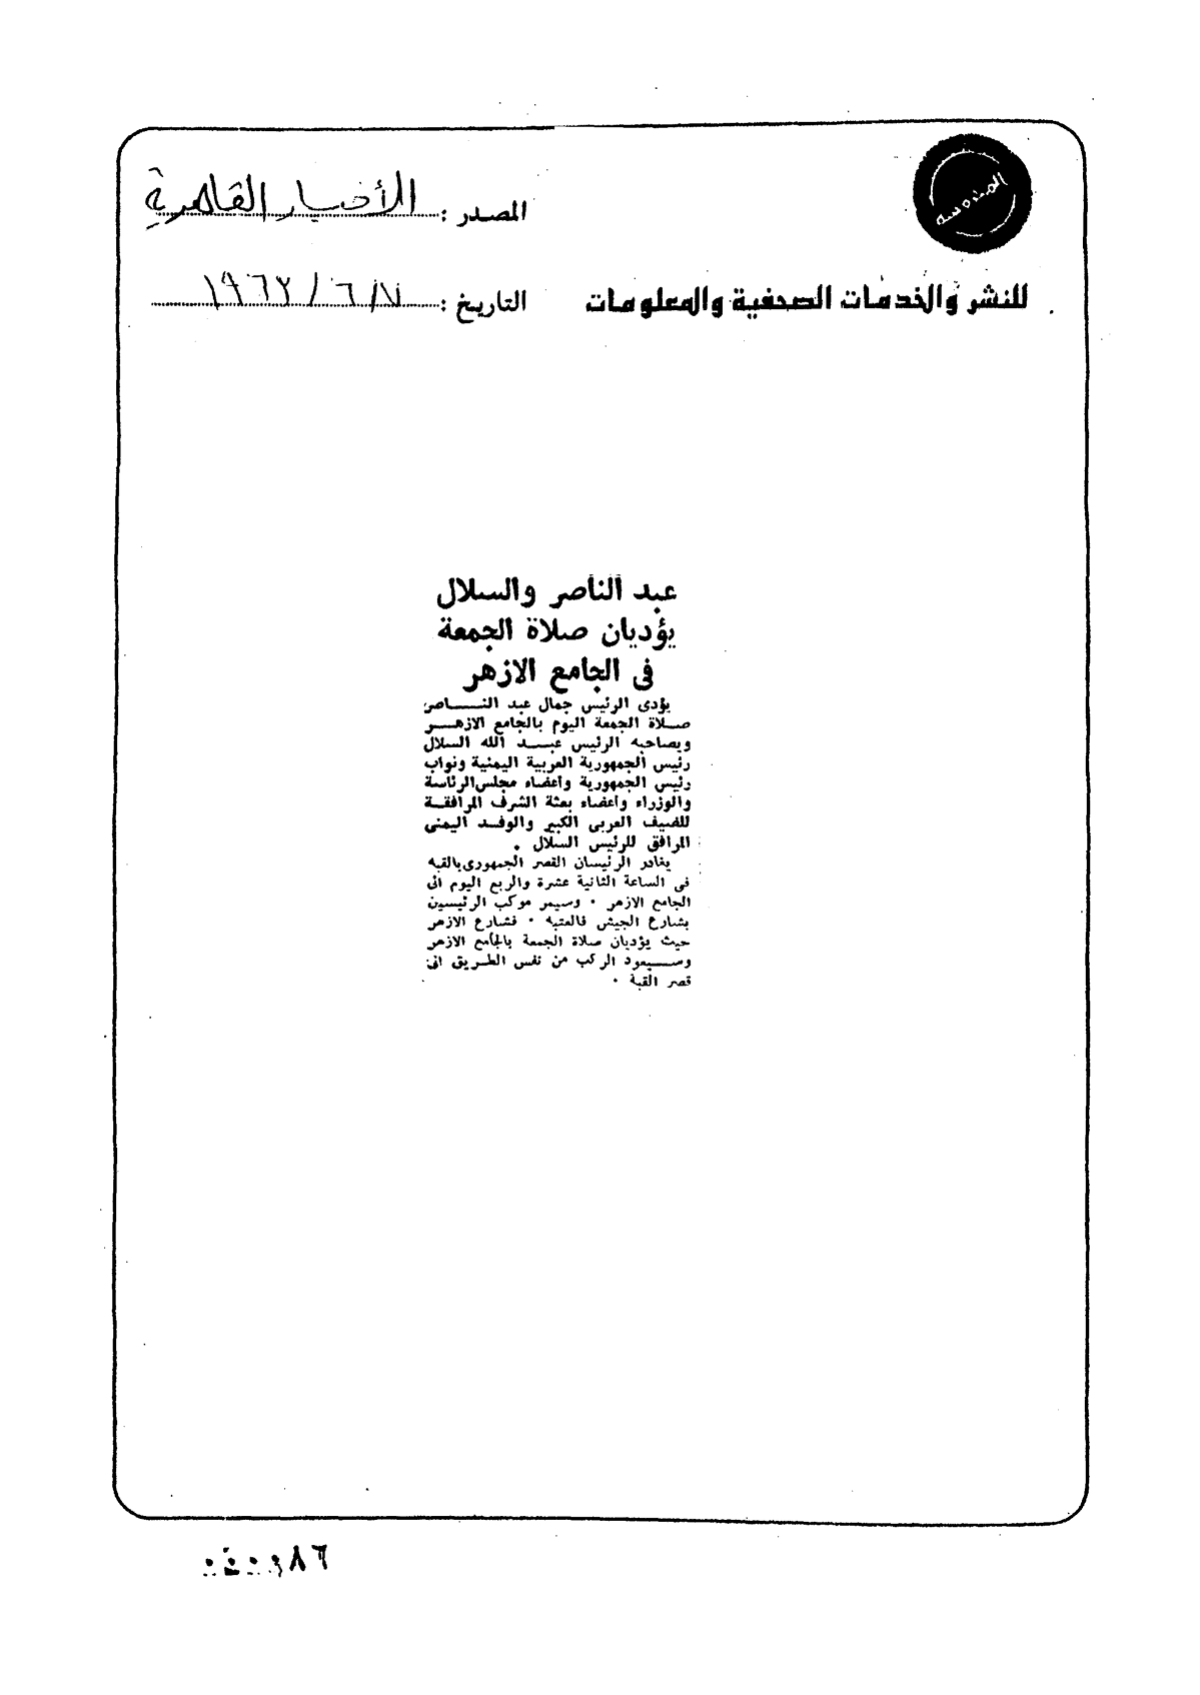 المصدر : الأخبار القاهرية
للنشر والخدمات الصحفية والمعلومات
التاريخ : ٧/ ٦ / ١٩٦٣
عبد الناصر والسلال
يؤديان صلاة الجمعة
فى الجامع الازهر
يؤدى الرئيس جمال عبد النـــاصر
صــلاة الجمعة اليوم بالجامع الازهــر
ويصاحبه الرئيس عبــد الله السلال
رئيس الجمهورية العربية اليمنية ونواب
رئيس الجمهورية وأعضاء مجلس الرئاسة
والوزراء وأعضاء بعثة الشرف المرافقــة
للضيف العربى الكبير والوفــد اليمنى
المرافق للرئيس السلال .
يغادر الرئيسان القصر الجمهورى بالقبه
فى الساعة الثانية عشرة والربع اليوم الى
الجامع الازهر . وسيمر موكب الرئيسين
بشارع الجيش فالعتبه . فشارع الازهر
حيث يؤديان صلاة الجمعة بالجامع الازهر
وســيعود الركب من نفس الطــريق الى
قصر القبة .